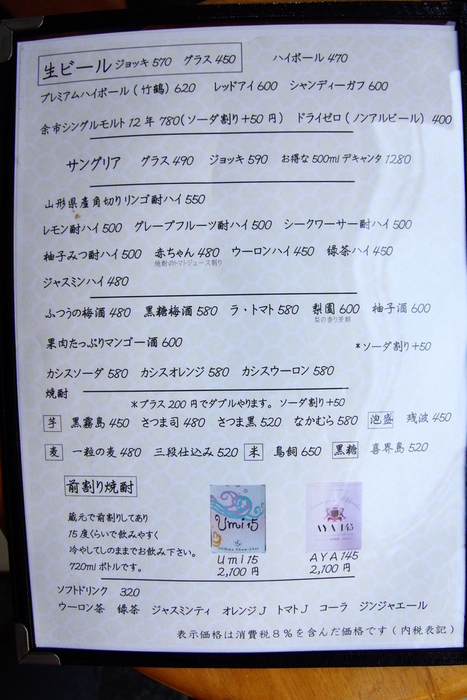 生ビール ジョッキ 570 グラス 450 ハイボール 470
プレミアムハイボール(竹鶴) 620 レッドアイ 600 シャンディーガフ 600
余市シングルモルト 12 年 780(ソーダ割り+50 円) ドライゼロ(ノンアルビール) 400
サングリア グラス 490 ジョッキ 590 お得な 500ml デキャンタ 1280
山形県産角切りリンゴ酎ハイ 550
レモン酎ハイ 500 グレープフルーツ酎ハイ 500 シークワーサー酎ハイ 500
柚子みつ酎ハイ 500 赤ちゃん 480 ウーロンハイ 450 緑茶ハイ 450
焼酎のトマトジュース割り
ジャスミンハイ 480
ふつうの梅酒 480 黒糖梅酒 580 ラ・トマト 580 梨園 600 柚子酒 600
梨の香り芳醇
果肉たっぷりマンゴー酒 600 *ソーダ割り+50
カシスソーダ 580 カシスオレンジ 580 カシスウーロン 580
焼酎
*プラス 200 円でダブルやります。 ソーダ割り+50
芋 黒霧島 450 さつま司 480 さつま黒 520 なかむら 580 泡盛 残波 450
麦 一粒の麦 480 三段仕込み 520 米 鳥飼 650 黒糖 喜界島 520
前割り焼酎
蔵元で前割りしてあり
15 度くらいで飲みやすく
冷やしてしのままでお飲み下さい。
720ml ボトルです。
Umi15
Umi15
2,100 円
AYA145
AYA145
2,100 円
ソフトドリンク 320
ウーロン茶 緑茶 ジャスミンティ オレンジJ トマトJ コーラ ジンジャエール
表示価格は消費税8%を含んだ価格です(内税表記)